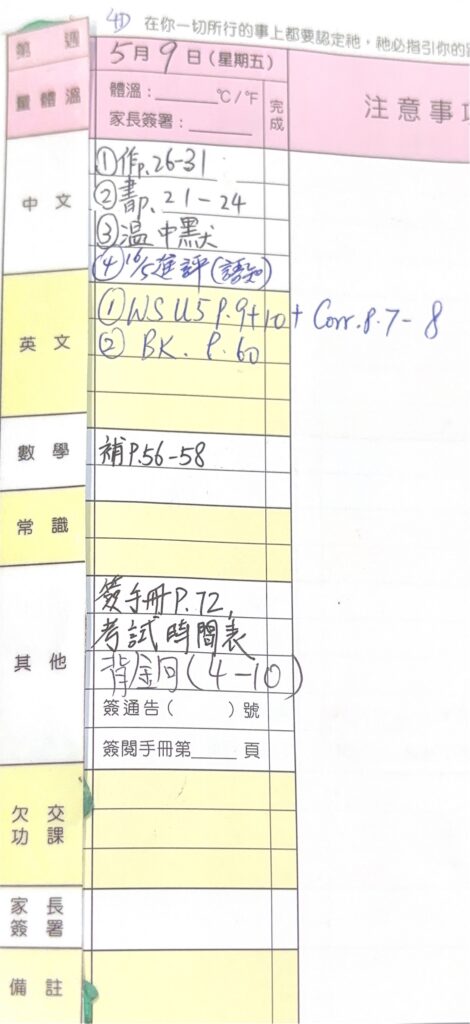 4D 在你一切所行的事上都要認定祂，祂必指引你的
第 週 5月9日(星期五)
量體溫 體溫：______ ℃/℉ 完成 注意事項
家長簽署：______
中文 ①作p.26-31
②書p.21-24
③溫中默
④16/5進評(語知)
英文 ①WS U5 P.9+10 + Corr.P.7-8
② BK. P.60
數學 補P.56-58
常識
其他 簽手冊P.72,
考試時間表
背金句(4-10)
簽通告( )號
簽閱手冊第____頁
欠交功課
家長簽署
備註